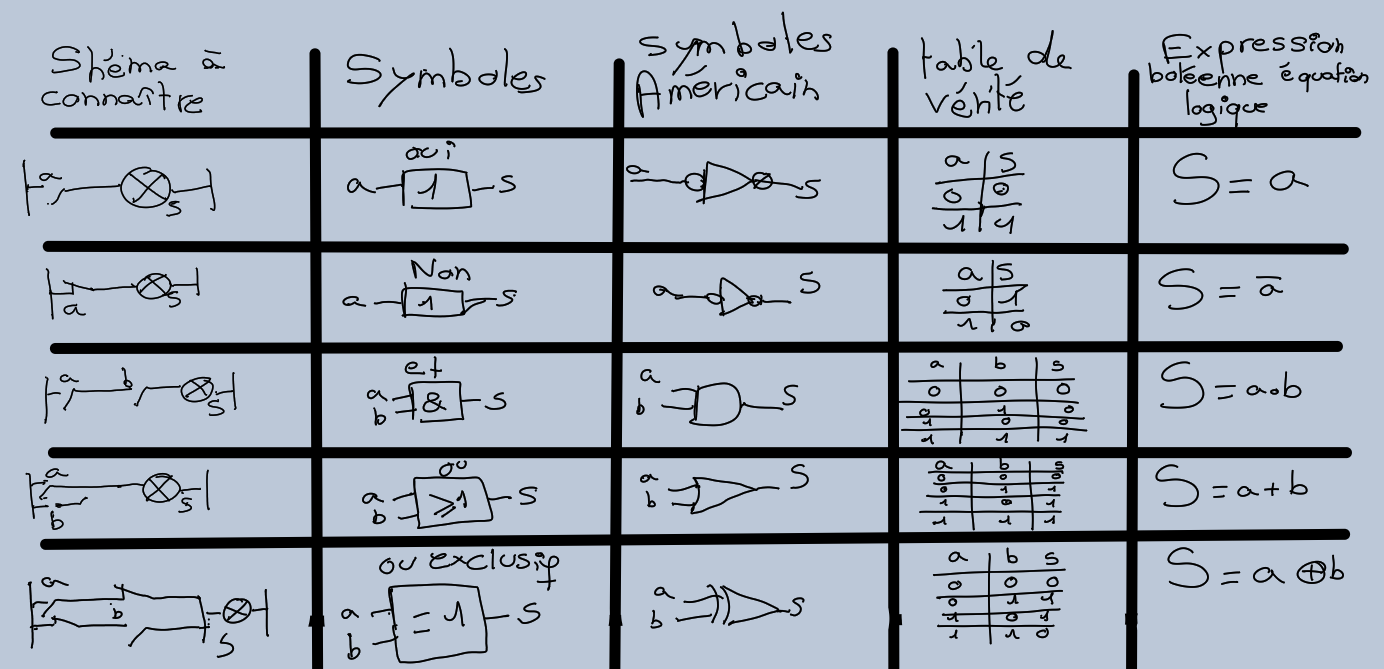 Shéma à
connaître
Symboles
Symboles
Américain
table de
vérité
Expression
boléenne équation
logique
a
S
oui
a 1 S
a S
a S
0 0
1 1
S = a
a
S
Non
a 1 S
a S
a S
0 1
1 0
S = a̅
a b
S
et
a
b & S
a
b S
a b s
0 0 0
0 1 0
1 0 0
1 1 1
S = a•b
a
b
S
ou
a
b ≥1 S
a
b S
a b s
0 0 0
0 1 1
1 0 1
1 1 1
S = a + b
a
b
S
ou exclusif
a
b = 1 S
a
b S
a b s
0 0 0
0 1 1
1 0 1
1 1 0
S = a ⊕ b